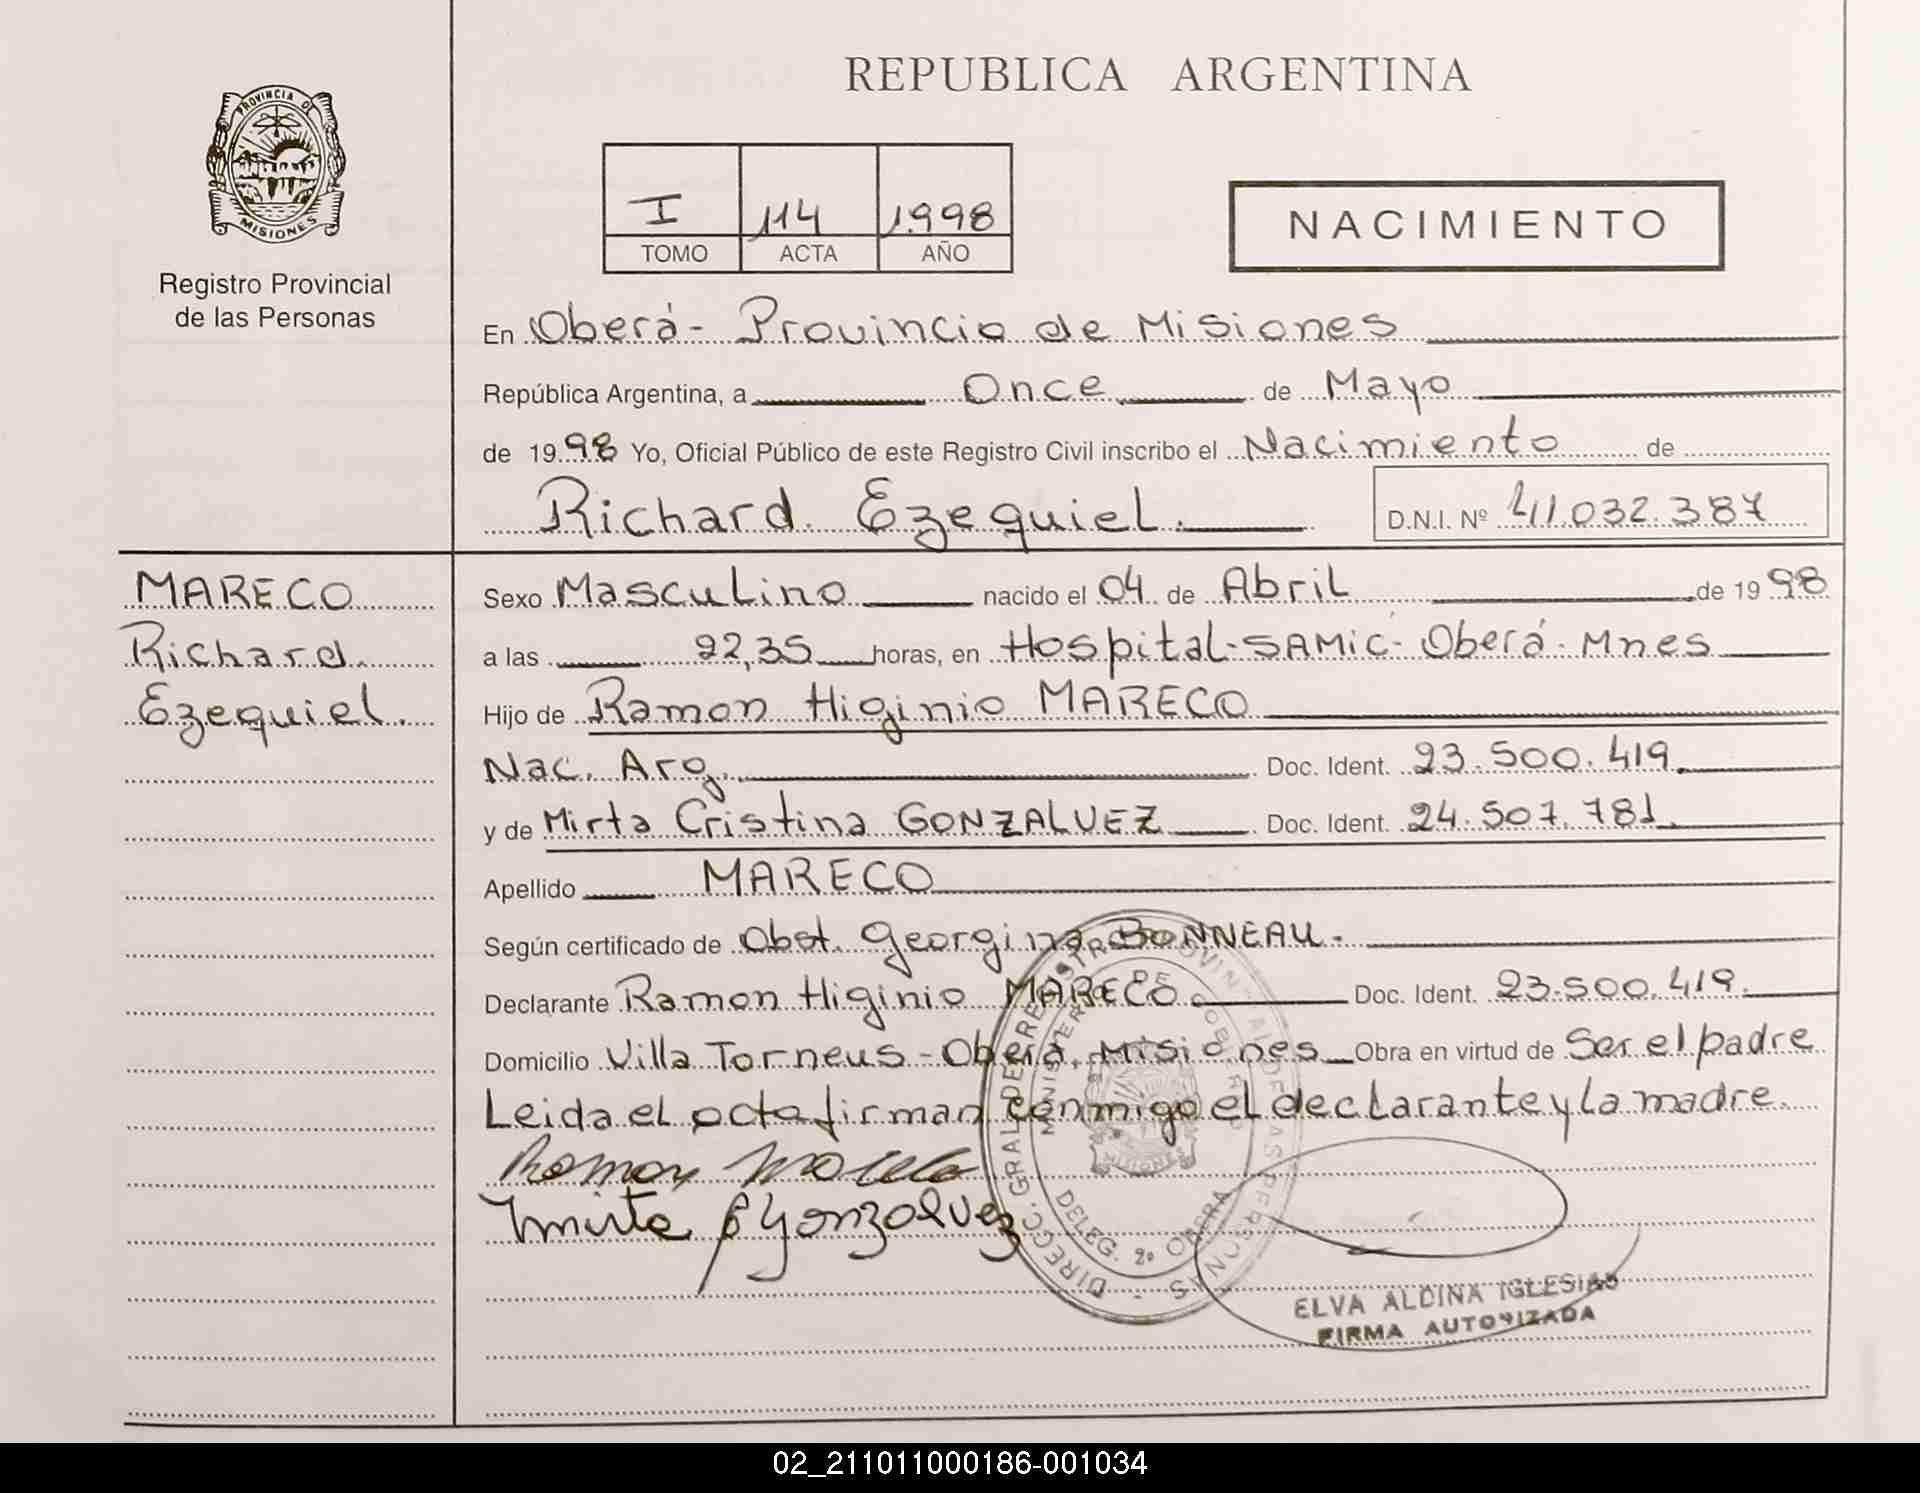 REPUBLICA ARGENTINA
PROVINCIA D
MISIONES
Registro Provincial
de las Personas
I 114 1.998
TOMO ACTA AÑO
NACIMIENTO
En Oberá - Provincia de Misiones
República Argentina, a Once de Mayo
de 1998 Yo, Oficial Público de este Registro Civil inscribo el Nacimiento de
Richard Ezequiel.
D.N.I. Nº 41.032.387
MARECO
Richard
Ezequiel.
Sexo Masculino nacido el 04 de Abril de 1998
a las 22,35 horas, en Hospital-SAMIC- Oberá- Mnes
Hijo de Ramon Higinio MARECO
Nac. Arg. Doc. Ident. 23.500.419.
y de Mirta Cristina GONZALVEZ Doc. Ident. 24.507.781.
Apellido MARECO
Según certificado de Obst. Georgina BONNEAU.
Declarante Ramon Higinio MARECO. Doc. Ident. 23.500.419.
Domicilio Villa Torneus - Oberá, Misiones Obra en virtud de Ser el padre
Leida el acta firman conmigo el declarante y la madre.
Ramon Mareco
Mirta C Gonzalvez
DIRECC. GRAL. DE REGISTRO PROVINCIAL DE LAS PERSONAS
MINISTERIO DE GOBIERNO
MISIONES
DELEG. 2º OBERA
ELVA ALDINA IGLESIAS
FIRMA AUTORIZADA
02_211011000186-001034